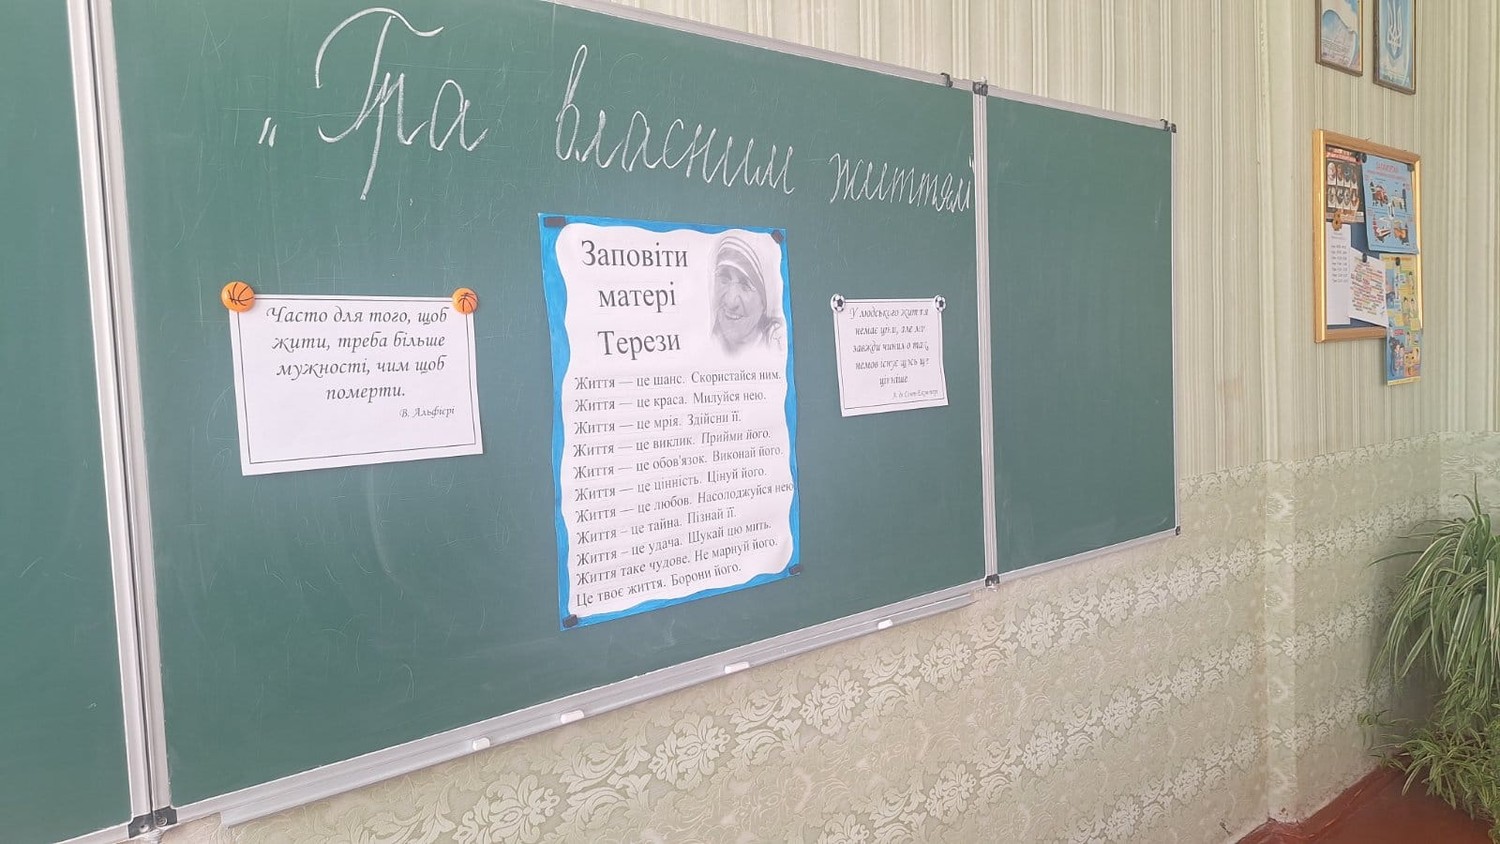 „Гра власним життям"
Часто для того, щоб
жити, треба більше
мужності, чим щоб
померти.
В. Альфієрі
Заповіти
матері
Терези
Життя — це шанс. Скористайся ним.
Життя — це краса. Милуйся нею.
Життя — це мрія. Здійсни її.
Життя — це виклик. Прийми його.
Життя — це обов'язок. Виконай його.
Життя — це цінність. Цінуй його.
Життя — це любов. Насолоджуйся нею
Життя – це тайна. Пізнай її.
Життя – це удача. Шукай цю мить.
Життя таке чудове. Не марнуй його.
Це твоє життя. Борони його.
У людського життя
немає ціни, але ми
завжди чиним о так,
немов існує щось ще
цінніше
А. де Сент-Екзюпері